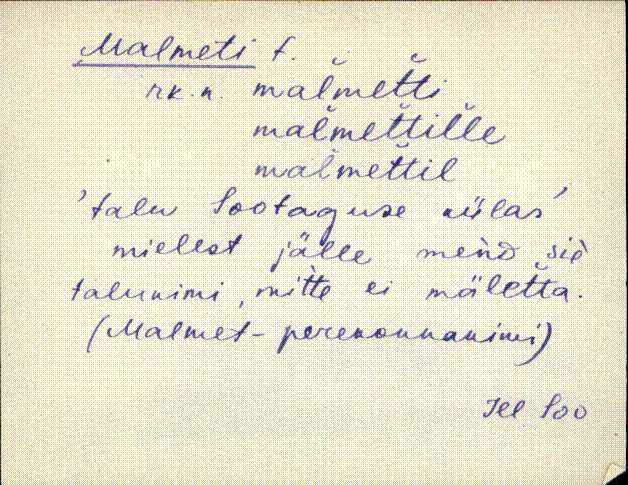 Malmeti t.
rk.n. mal̆met̆ti
mal̆met̆til̆le
mal̆met̆til
'talu Sootaguse külas'
mielest jälle mend sie
talunimi, mitte ei mäletta.
(Malmet - perekonnanimi)
Jell Soo